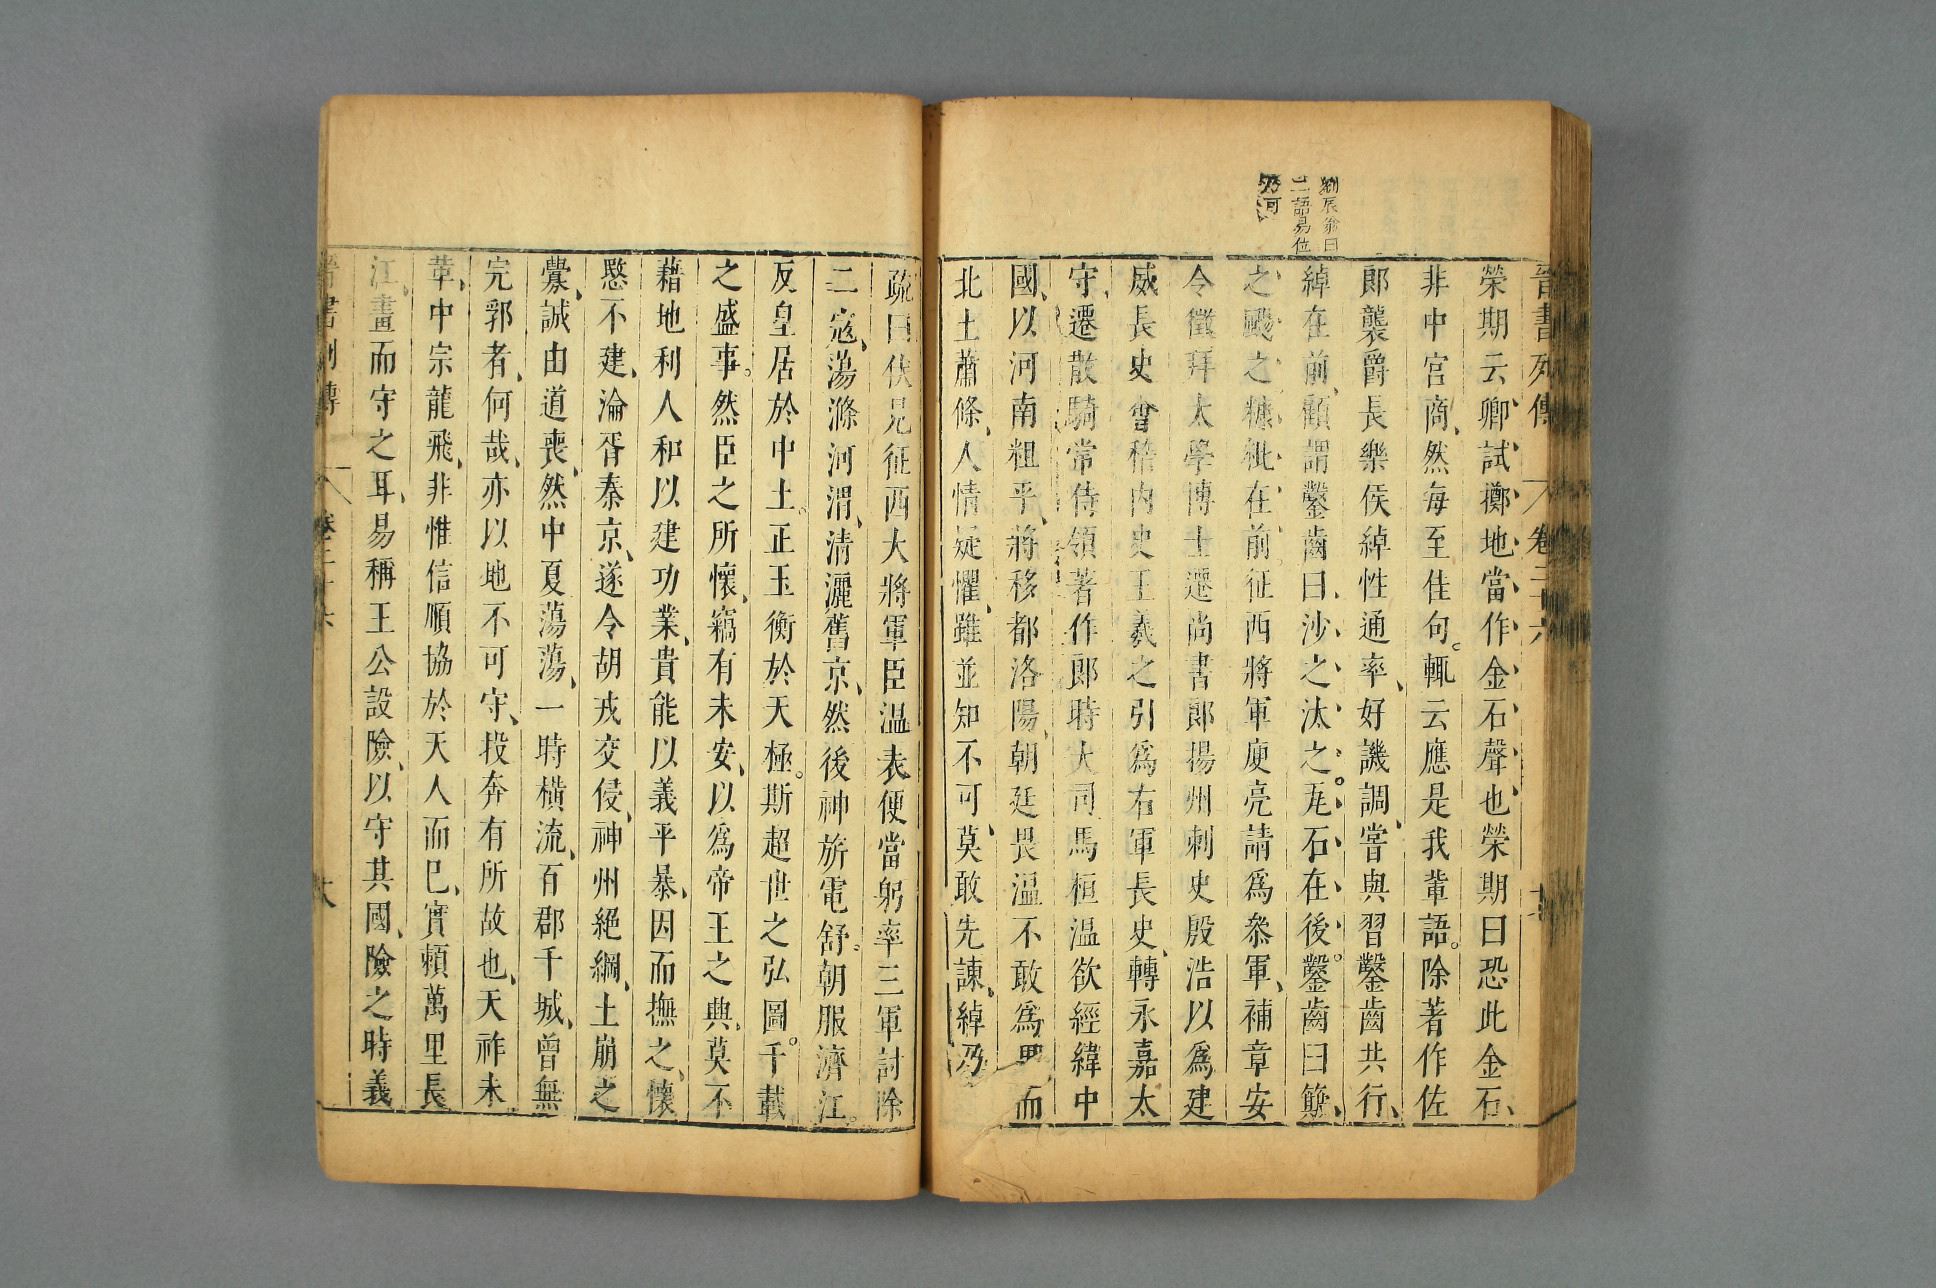 劉辰翁曰
二語易位
乃可
晉書列傳 卷二十六
榮期云卿試擲地當作金石聲也榮期曰恐此金石
非中宮商然每至佳句輒云應是我輩語除著作佐
郎襲爵長樂侯綽性通率好譏調嘗與習鑿齒共行
綽在前顧謂鑿齒曰沙之汰之瓦石在後鑿齒曰簸
之颺之糠粃在前征西將軍庾亮請爲叅軍補章安
令徵拜太學博士遷尚書郎揚州刺史殷浩以爲建
威長史會稽內史王羲之引爲右軍長史轉永嘉太
守遷散騎常侍領著作郎時大司馬桓温欲經緯中
國以河南粗平將移都洛陽朝廷畏温不敢爲異而
北土蕭條人情疑懼雖並知不可莫敢先諫綽乃
疏曰伏見征西大將軍臣温表便當躬率三軍討除
二寇蕩滌河渭清灑舊京然後神旂電舒朝服濟江
反皇居於中土正玉衡於天極斯超世之弘圖千載
之盛事然臣之所懷竊有未安以爲帝王之興莫不
藉地利人和以建功業貴能以義平暴因而撫之懷
愍不建淪胥秦京遂令胡戎交侵神州絕綱土崩之
釁誠由道喪然中夏蕩蕩一時橫流百郡千城曾無
完郛者何哉亦以地不可守投奔有所故也天祚未
革中宗龍飛非惟信順協於天人而已實賴萬里長
江畫而守之耳易稱王公設險以守其國險之時義
晉書列傳 卷二十六